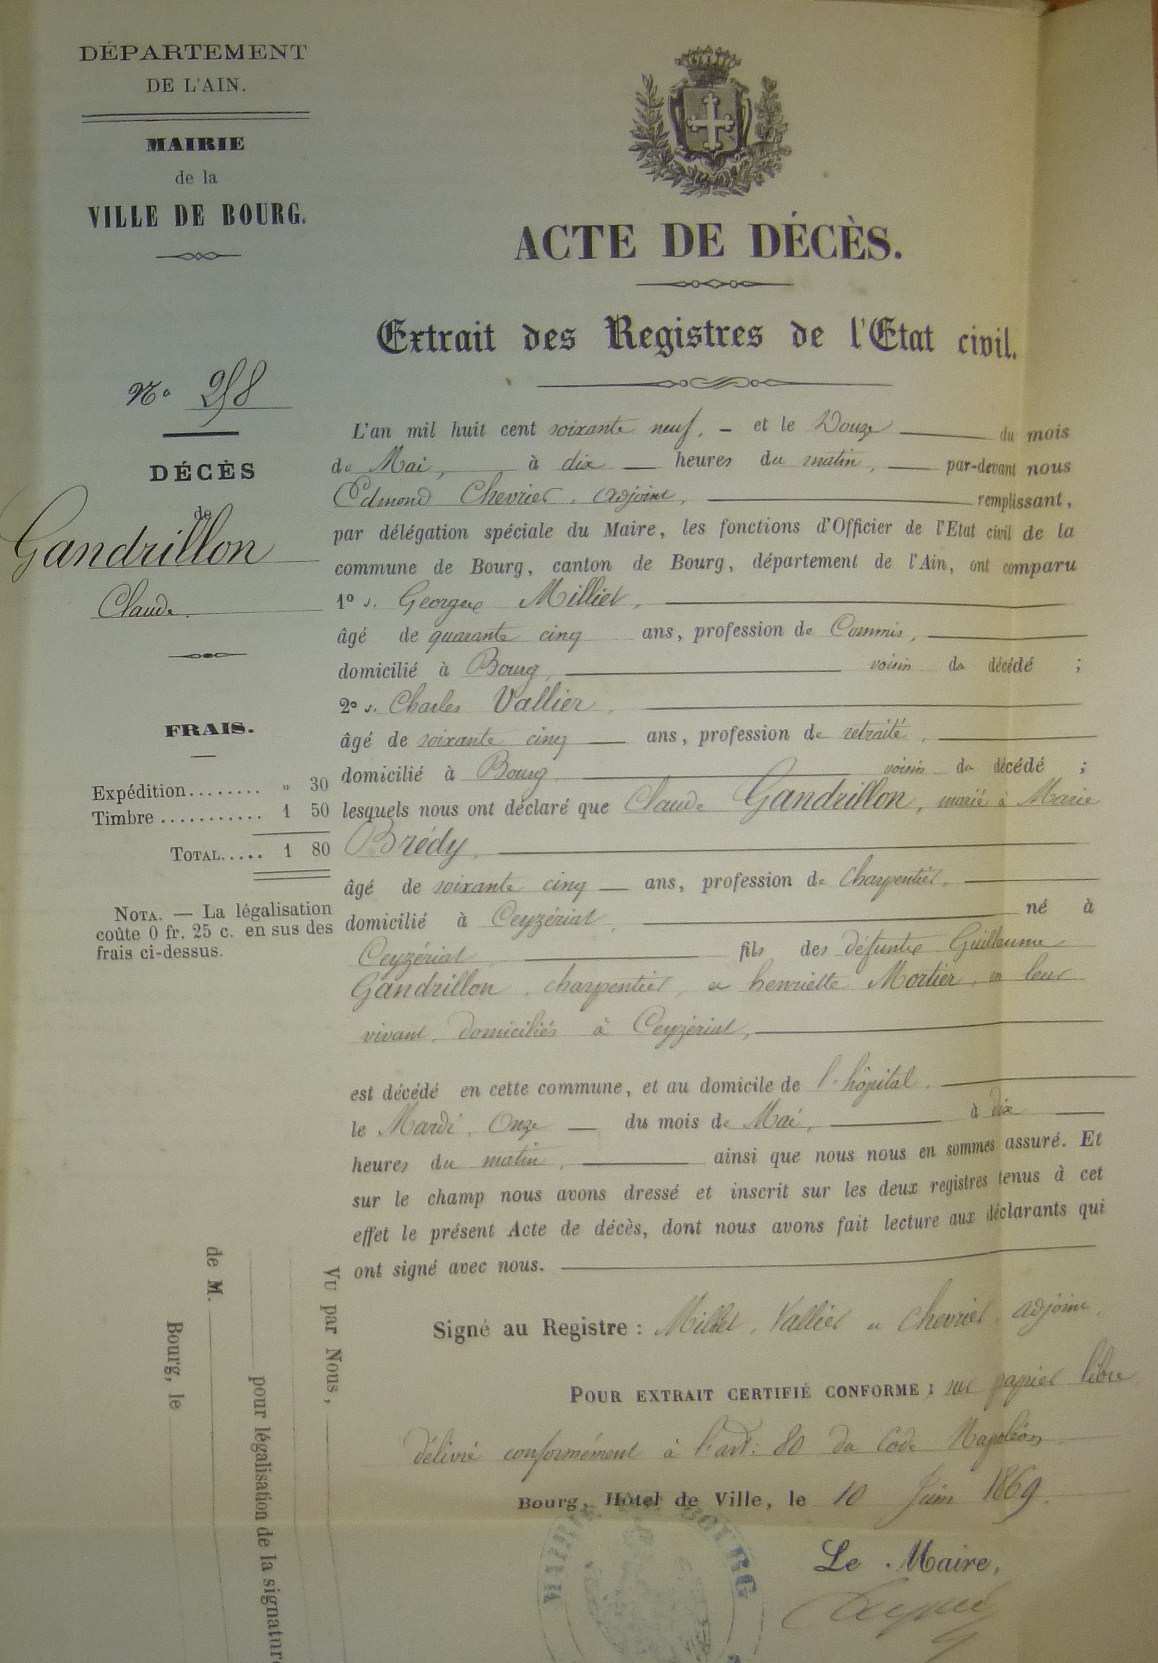 DÉPARTEMENT
DE L'AIN.
MAIRIE
de la
VILLE DE BOURG.
N° 258
DÉCÈS
de
Gandrillon
Claude.
FRAIS.
Expédition........ " 30
Timbre........... 1 50
TOTAL..... 1 80
NOTA. — La légalisation
coûte 0 fr. 25 c. en sus des
frais ci-dessus.
ACTE DE DÉCÈS.
Extrait des Registres de l'Etat civil.
L'an mil huit cent soixante neuf, - et le Douze du mois
de Mai, à dix heures du matin, par-devant nous
Edmond Chevrier, adjoint, remplissant,
par délégation spéciale du Maire, les fonctions d'Officier de l'Etat civil de la
commune de Bourg, canton de Bourg, département de l'Ain, ont comparu
1° s. Georges Milliet,
âgé de quarante cinq ans, profession de Commis,
domicilié à Bourg, voisin du décédé ;
2° s. Charles Vallier,
âgé de soixante cinq ans, profession de retraité,
domicilié à Bourg, voisin du décédé ;
lesquels nous ont déclaré que Claude Gandrillon, marié à Marie
Brédy,
âgé de soixante cinq ans, profession de charpentier,
domicilié à Ceyzériat, né à
Ceyzériat, fils des défunts Guillaume
Gandrillon, charpentier, et henriette Mortier, en leur
vivant, domiciliés à Ceyzériat,
est décédé en cette commune, et au domicile de l'hôpital,
le Mardi, Onze du mois de Mai, à dix
heures du matin, ainsi que nous nous en sommes assuré. Et
sur le champ nous avons dressé et inscrit sur les deux registres tenus à cet
effet le présent Acte de décès, dont nous avons fait lecture aux déclarants qui
ont signé avec nous.
Signé au Registre : Milliet, Vallier et Chevrier, adjoint.
POUR EXTRAIT CERTIFIÉ CONFORME ; sur papier libre
délivré conformément à l'art: 80 du Code Napoléon
Bourg, Hôtel de Ville, le 10 Juin 1869.
Le Maire,
MAIRIE BOURG
Vu par Nous,
pour légalisation de la signature
de M.
Bourg, le